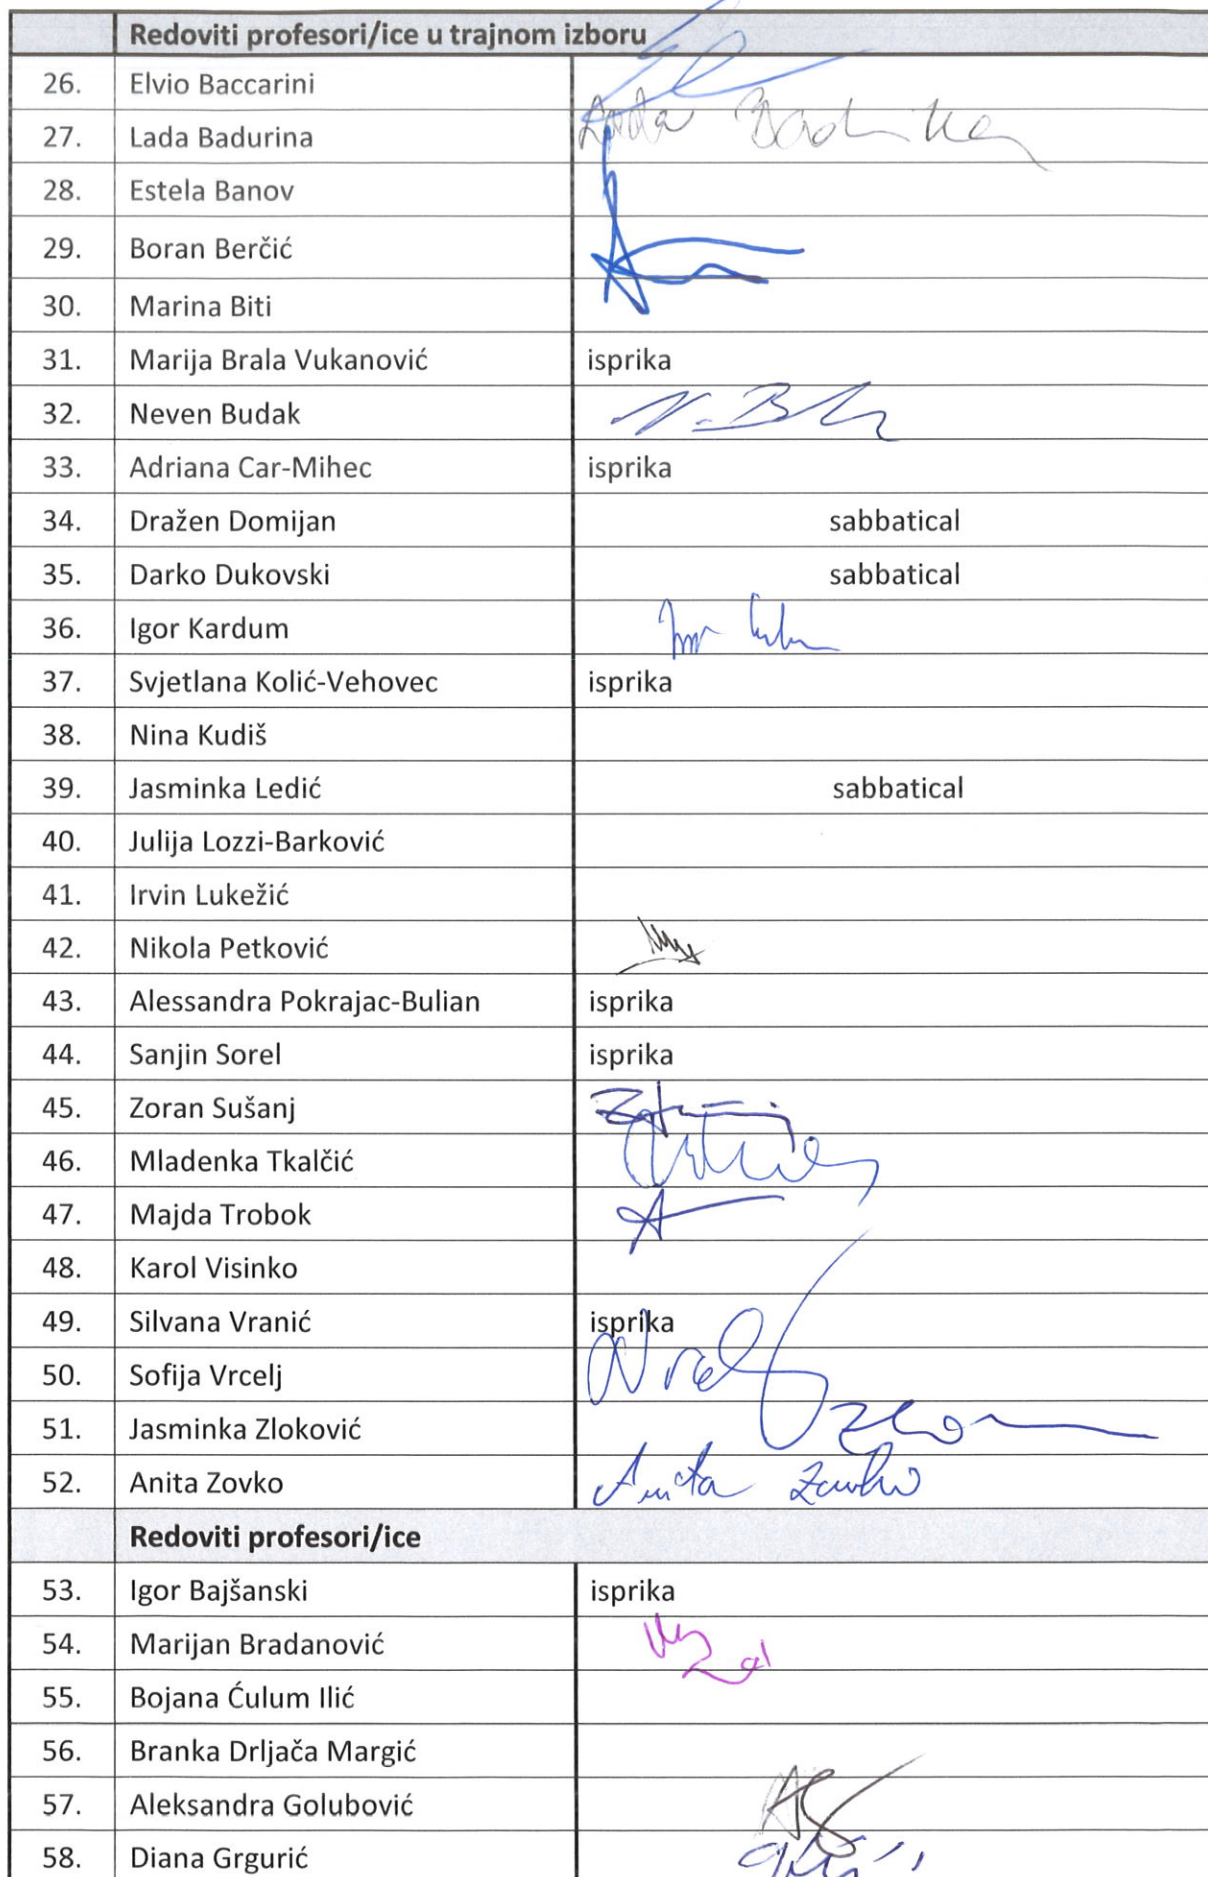 Redoviti profesori/ice u trajnom izboru
26. Elvio Baccarini
27. Lada Badurina Lada Badurina
28. Estela Banov
29. Boran Berčić
30. Marina Biti
31. Marija Brala Vukanović isprika
32. Neven Budak
33. Adriana Car-Mihec isprika
34. Dražen Domijan sabbatical
35. Darko Dukovski sabbatical
36. Igor Kardum
37. Svjetlana Kolić-Vehovec isprika
38. Nina Kudiš
39. Jasminka Ledić sabbatical
40. Julija Lozzi-Barković
41. Irvin Lukežić
42. Nikola Petković
43. Alessandra Pokrajac-Bulian isprika
44. Sanjin Sorel isprika
45. Zoran Sušanj
46. Mladenka Tkalčić
47. Majda Trobok
48. Karol Visinko
49. Silvana Vranić isprika
50. Sofija Vrcelj
51. Jasminka Zloković
52. Anita Zovko Anita Zovko
Redoviti profesori/ice
53. Igor Bajšanski isprika
54. Marijan Bradanović
55. Bojana Ćulum Ilić
56. Branka Drljača Margić
57. Aleksandra Golubović
58. Diana Grgurić